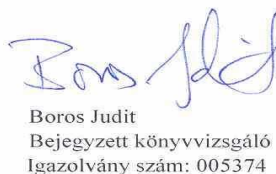 Boros Judit
Boros Judit
Bejegyzett könyvvizsgáló
Igazolvány szám: 005374